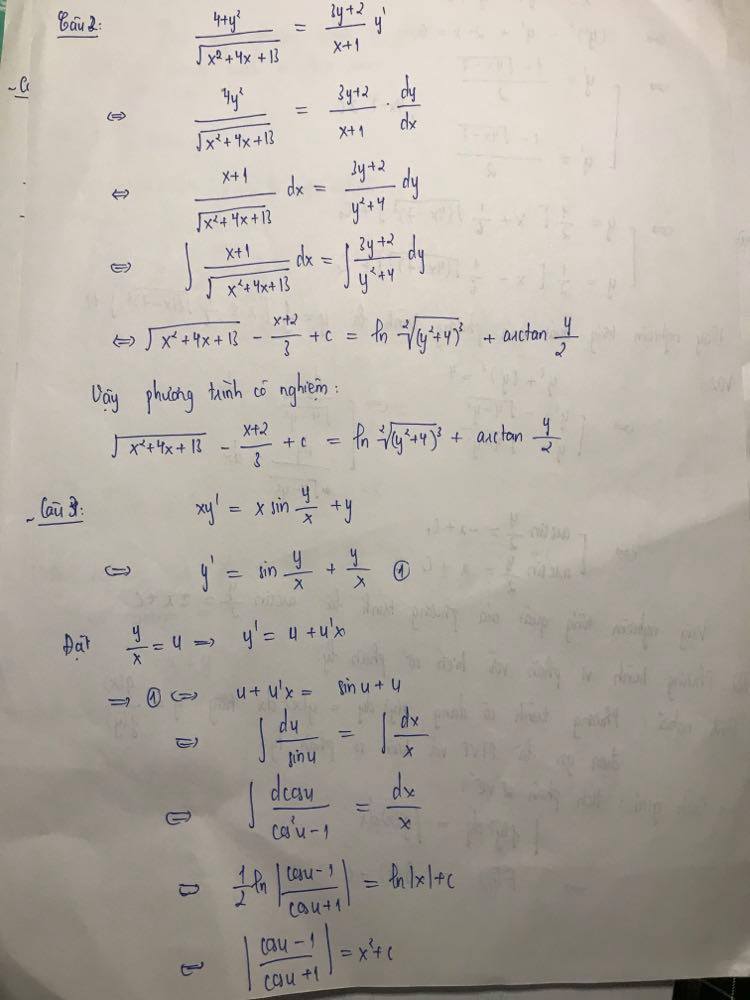 Câu 2: (4+y²)/√(x²+4x+13) = (3y+2)/(x+1) y'
⇔ 4y²/√(x²+4x+13) = (3y+2)/(x+1) · dy/dx
⇔ (x+1)/√(x²+4x+13) dx = (3y+2)/(y²+4) dy
⇔ ∫ (x+1)/√(x²+4x+13) dx = ∫ (3y+2)/(y²+4) dy
⇔ √(x²+4x+13) - (x+2)/3 + c = ln ²√(y²+4)³ + arctan y/2
Vậy phương trình có nghiệm:
√(x²+4x+13) - (x+2)/3 + c = ln ²√(y²+4)³ + arctan y/2
- Câu 3: xy' = x sin y/x + y
⇔ y' = sin y/x + y/x ①
Đặt y/x = u ⇒ y' = u + u'x
⇒ ① ⇔ u + u'x = sin u + u
⇔ ∫ du/sin u = ∫ dx/x
⇔ ∫ dcosu/(cos²u-1) = dx/x
⇔ 1/2 ln |(cosu-1)/(cosu+1)| = ln|x|+c
⇔ |(cosu-1)/(cosu+1)| = x²+c